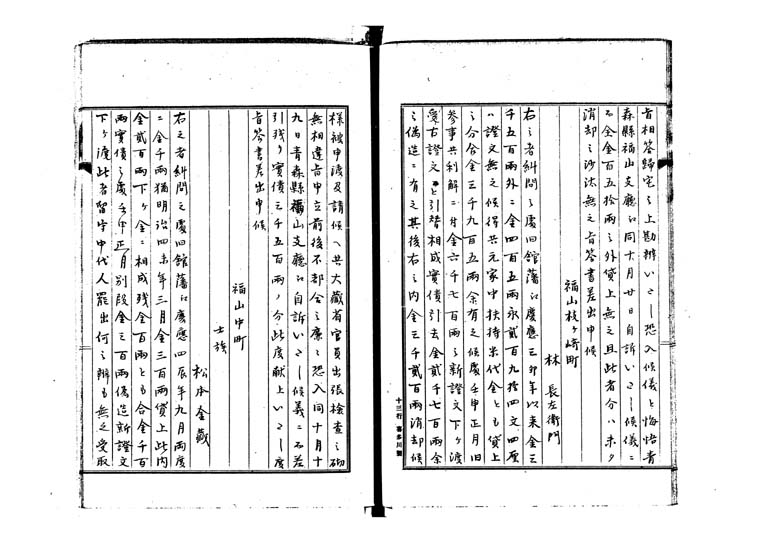 旨相答歸宅之上勘辨いたし恐入候儀と悔悟青
森縣福山支廳江同十月廿日自訴いたし候儀ニ
而金百五拾兩之外貸上無之且此者分ハ未タ
消却之沙汰無之旨答書差出申候
福山枝ヶ崎町
林長左衛門
右之者糾問之處旧館藩江慶應三卯年以来金三
千五百兩外ニ金四百五兩永貳百九拾四文四厘
ハ證文無之候得共元家中扶持米代金とも貸上
之分合金三千九百五兩余有之候處壬申正月旧
參事共利解ニ付金六千七百兩之新證文下ケ渡
受古證文と引替相成實債引去金貳千七百兩余
之偽造ニ有之其後右之内金三千貳百兩消却候
十三行 喜多川製
様被申渡及請候ヘ共大藏省官員出張檢査之砌
無相違旨申立前後不都合之廉之恐入同十月十
九日青森縣福山支廳江自訴いたし候義ニ而若
引残り實債三千五百兩ノ分此度献上いたし度
旨答書差出申候
福山中町
士族
松本金藏
右之者糾問之處旧館藩江慶應四辰年九月兩度
ニ金千兩猶明治四未年三月金三百兩貸上此内
金貳百兩下ケ金ニ相成残金百兩とも合金千百
兩實債之處壬申正月別段金三百兩偽造新證文
下ケ渡此者留守中代人罷出何之辨も無之受取